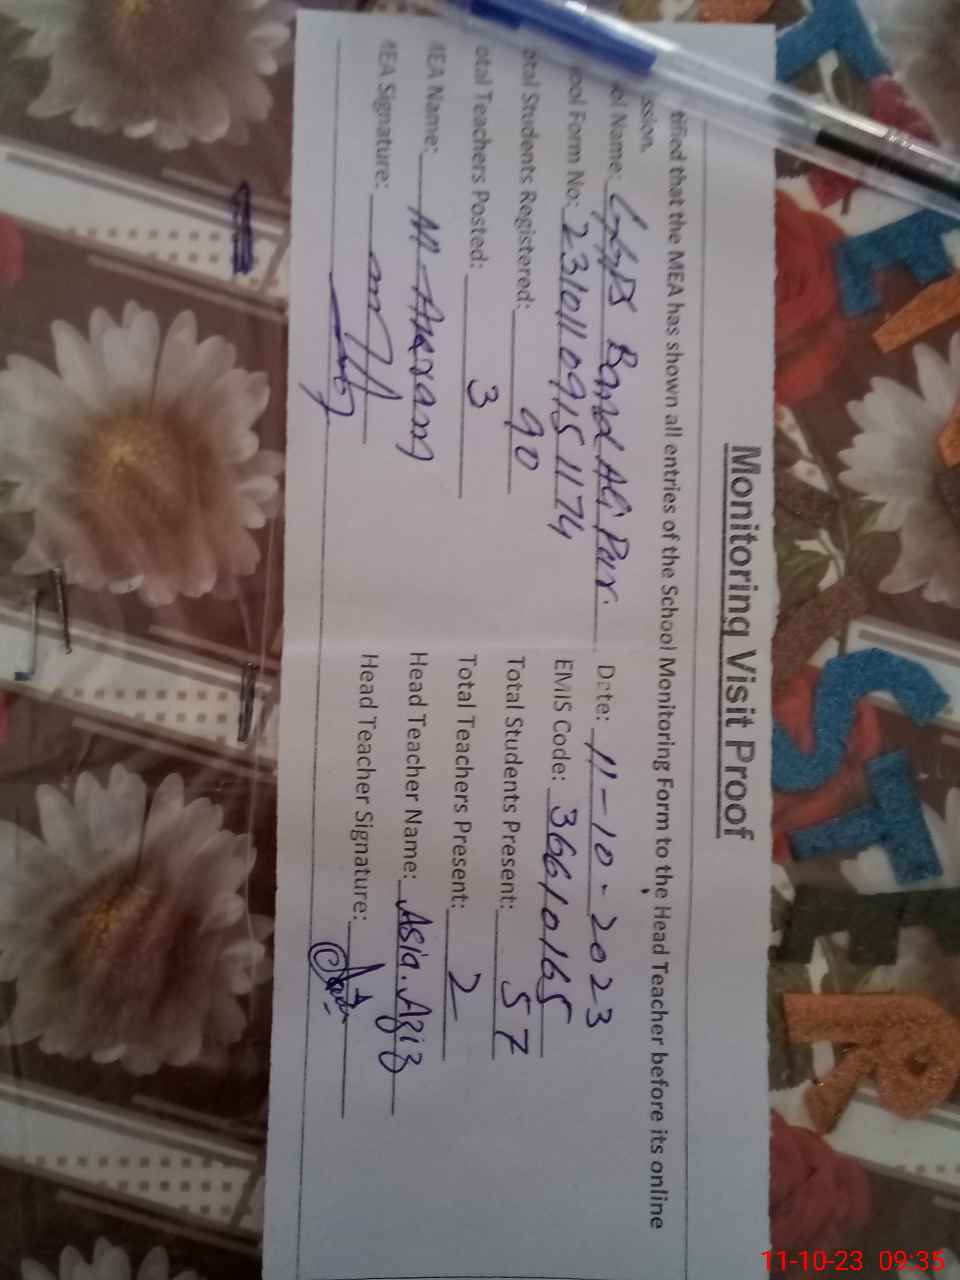 Monitoring Visit Proof
tified that the MEA has shown all entries of the School Monitoring Form to the Head Teacher before its online
ssion.
ol Name: Band Ali Pur. Date: 11-10-2023
ool Form No: 23101109151174 EMIS Code: 36610165
otal Students Registered: 90 Total Students Present: 57
otal Teachers Posted: 3 Total Teachers Present: 2
MEA Name: M Akram Head Teacher Name: Asia. Aziz
MEA Signature: Head Teacher Signature:
11-10-23 09:35